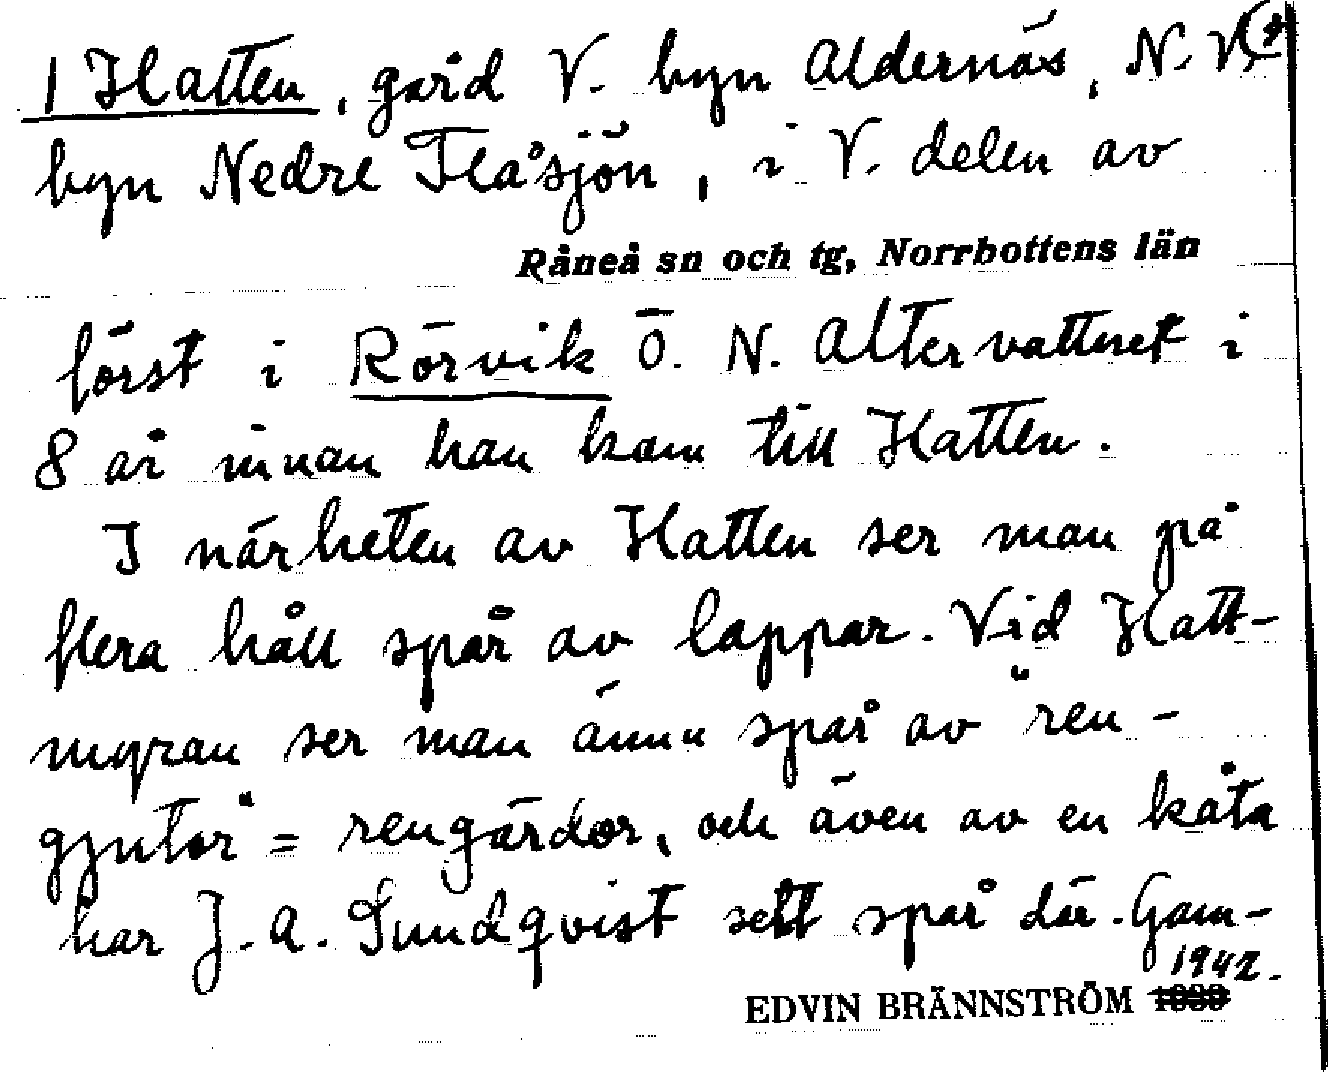 1 Hatten, gård V. byn Aldernäs, N. V.
byn Nedre Flåsjön, i V. delen av
Råneå sn och tg, Norrbottens län
först i Rörvik Ö. N. Altervattnet i
8 år innan han kom till Hatten.
I närheten av Hatten ser man på
flera håll spår av lappar. Vid Hatt-
myran ser man ännu spår av "ren-
gjutor" = rengärdor, och även av en kåta
har J. A. Sundqvist sett spår där. Gam-
1942.
EDVIN BRÄNNSTRÖM